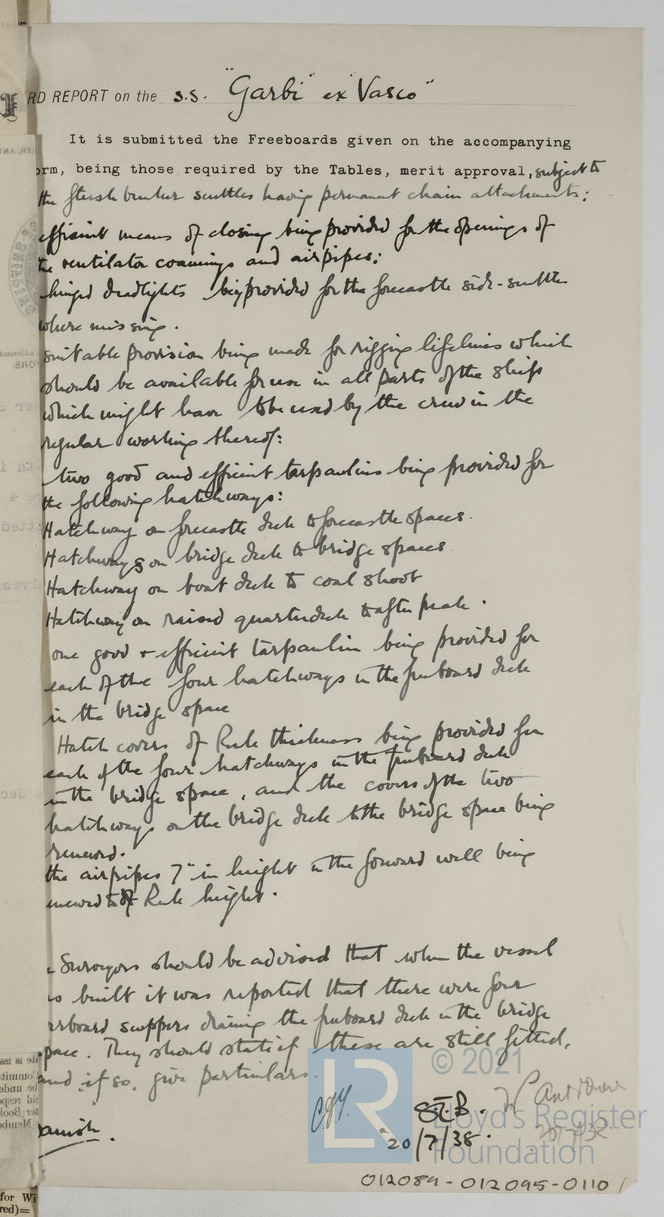 RD REPORT on the s.s. "Garbi" ex "Vasco"
It is submitted the Freeboards given on the accompanying
orm, being those required by the Tables, merit approval, subject to
the flush bunker scuttles having permanent chain attachments:
efficient means of closing being provided for the openings of
the ventilator coamings and airpipes:
hinged deadlights being provided for the forecastle side-scuttles
where missing.
suitable provision being made for rigging lifelines which
should be available for use in all parts of the ship
which might have to be used by the crew in the
regular working thereof:
two good and efficient tarpaulins being provided for
the following hatchways:
Hatchway on forecastle deck to forecastle spaces.
Hatchways on bridge deck to bridge spaces
Hatchway on boat deck to coal shoot
Hatchway on raised quarterdeck to after peak.
one good + efficient tarpaulin being provided for
each of the four hatchways in the freeboard deck
in the bridge space
Hatch covers of Rule thickness being provided for
each of the four hatchways in the freeboard deck
in the bridge space, and the covers of the two
hatchways on the bridge deck to the bridge space being
renewed.
the airpipes 7" in height in the forward well being
renewed to of Rule height.
Surveyors should be advised that when the vessel
was built it was reported that there were four
arboard scuppers draining the freeboard deck in the bridge
pace. They should state if these are still fitted,
and if so, give particulars.
anish.
20/7/38.
© 2021
LR
Lloyd's Register
Foundation
012089-012095-0110
for Wi
red)=